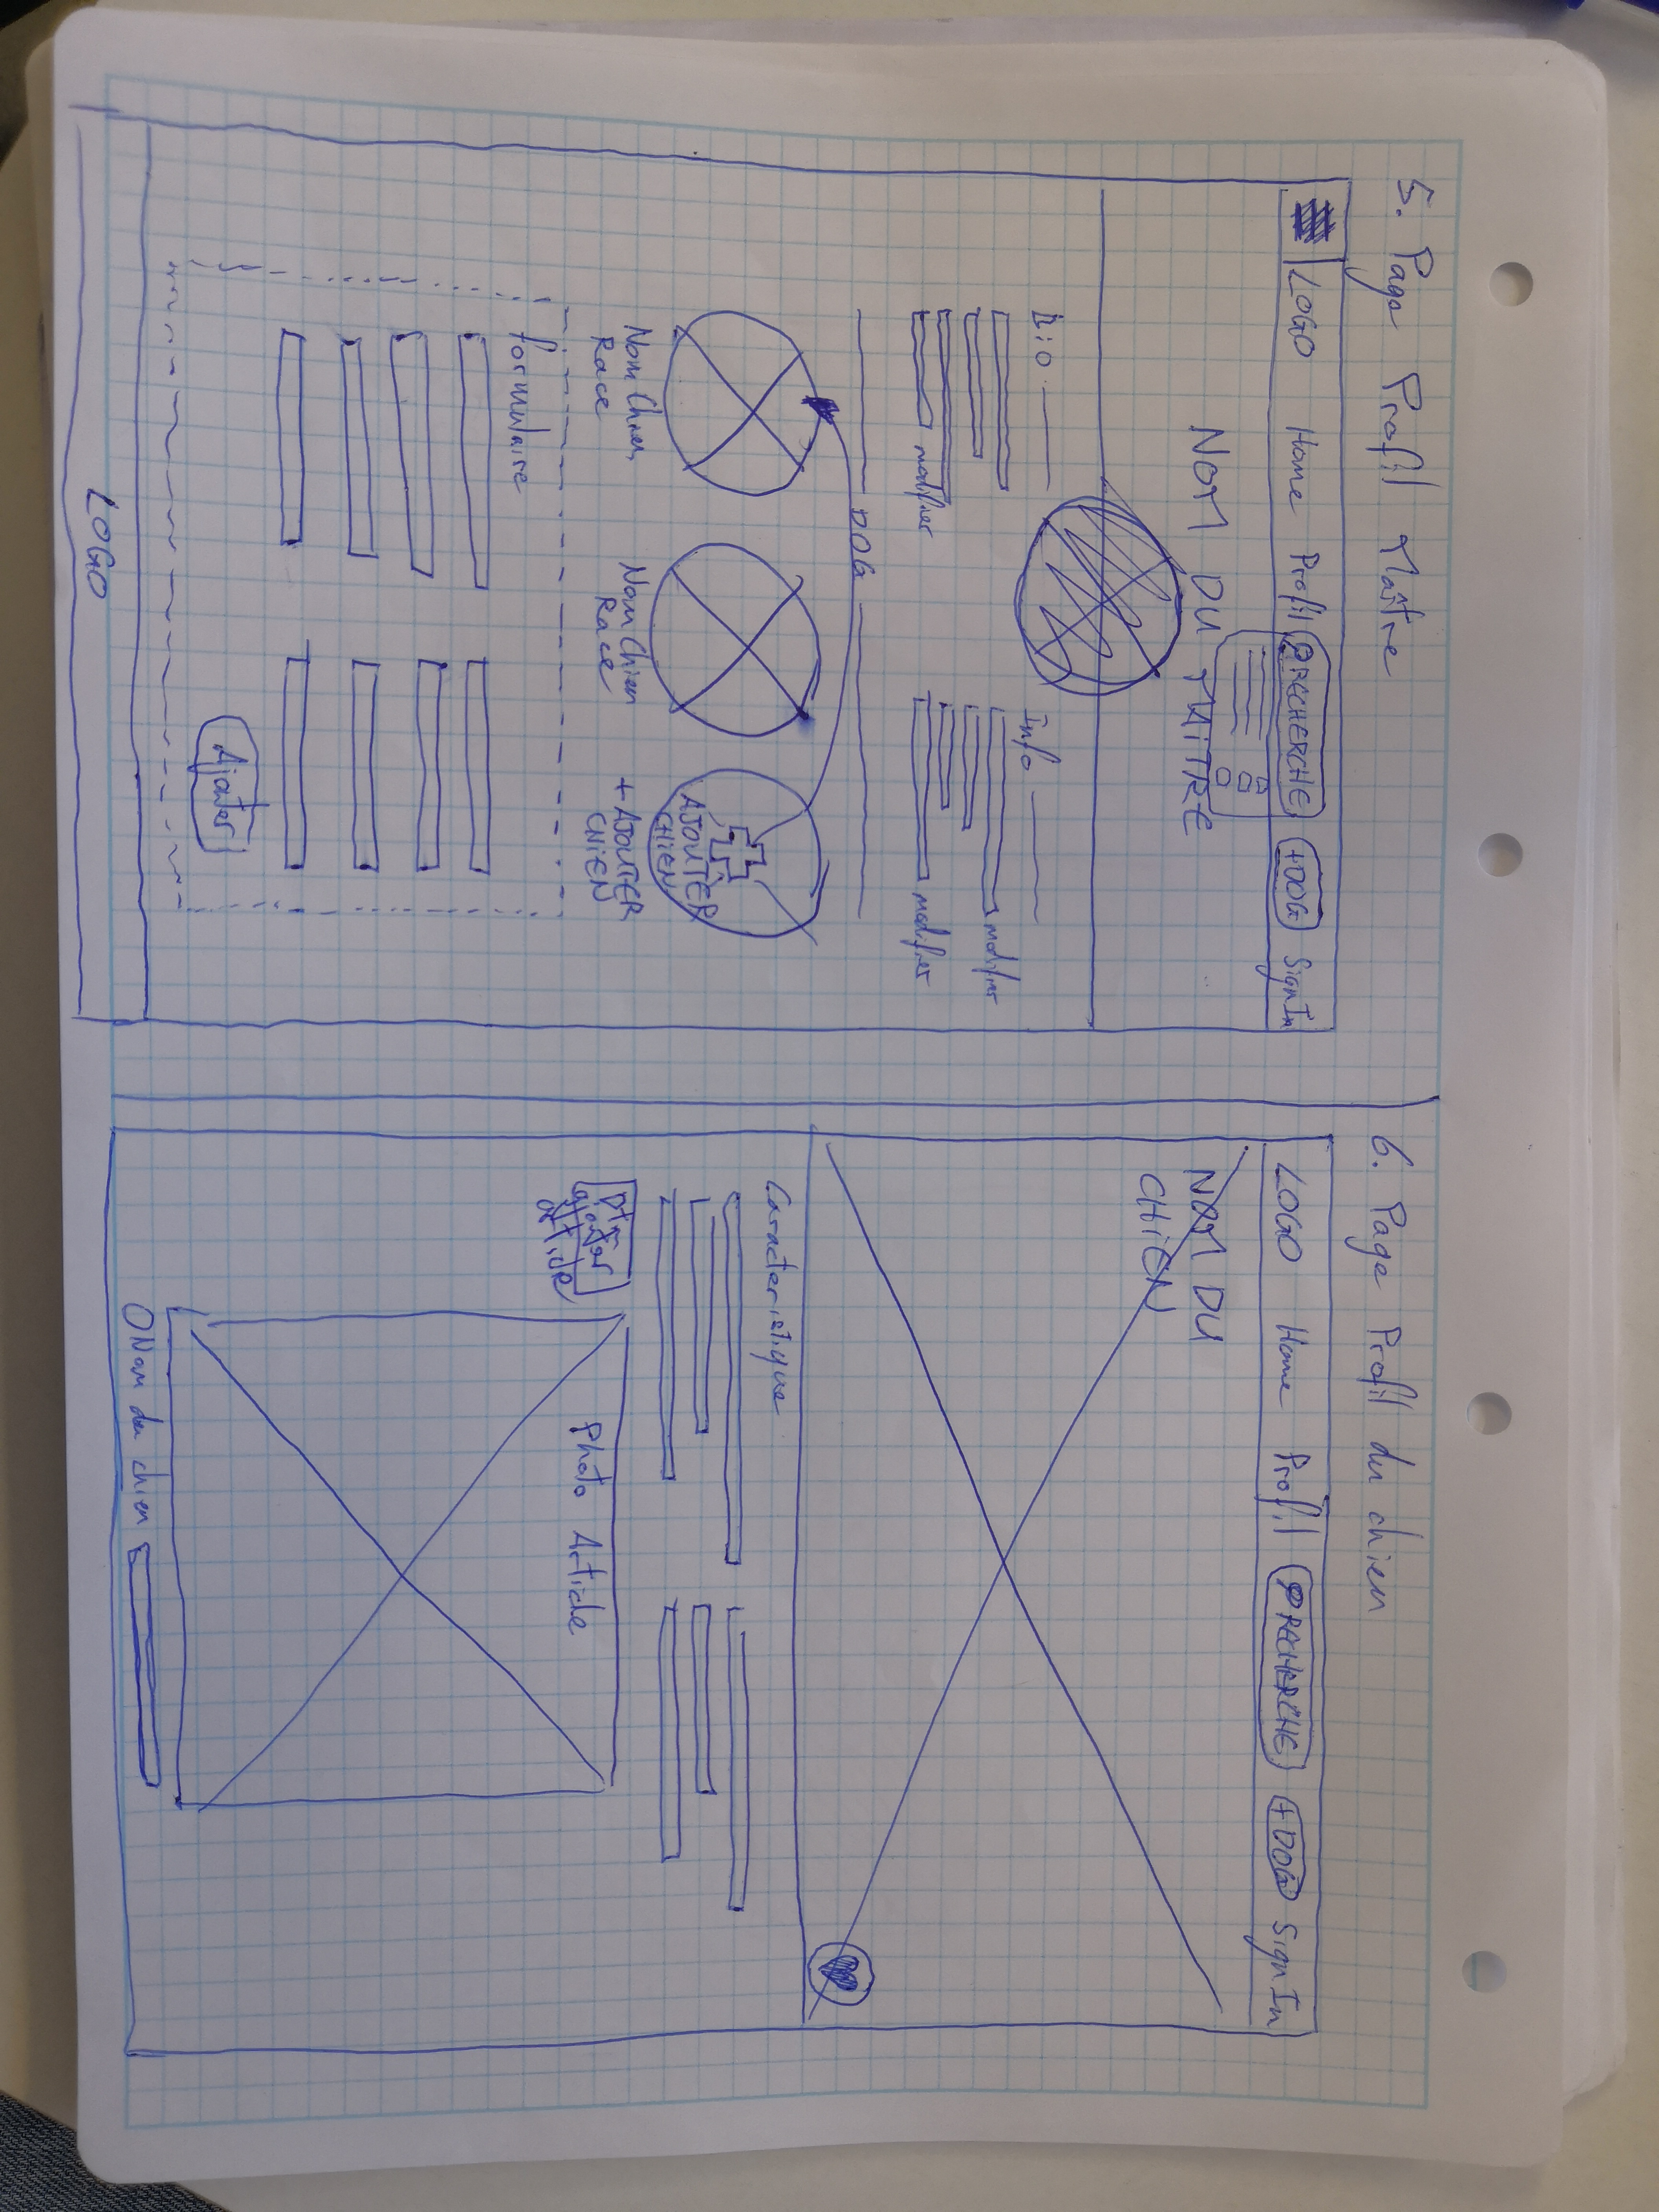 5. Page Profil Maître
LOGO Home Profil RECHERCHE +DOG Sign In
NOM DU MAITRE
Bio
Info
modifier
modifier
modifier
DOG
Nom Chien
Race
Nom Chien
Race
AJOUTER
CHIEN
+ AJOUTER
CHIEN
formulaire
Ajouter
LOGO
6. Page Profil du chien
LOGO Home Profil RECHERCHE +DOG Sign In
NOM DU
CHIEN
Caracteristique
ajouter
article
Photo Article
Nom du chien